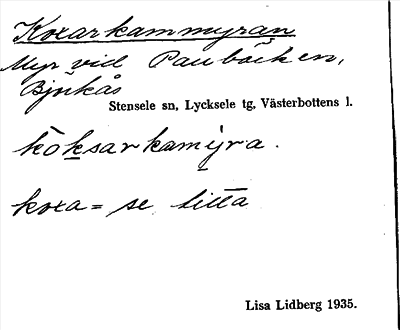 Koxarkammyran
Myr vid Paubäcken,
Björkås
Stensele sn, Lycksele tg, Västerbottens l.
kòksarkamýra.
koxa = se, titta
Lisa Lidberg 1935.